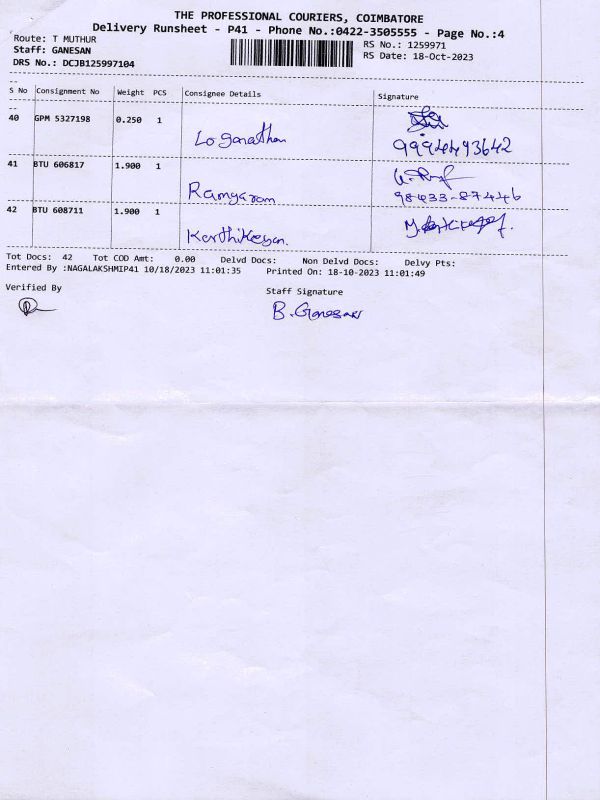 THE PROFESSIONAL COURIERS, COIMBATORE
Delivery Runsheet - P41 - Phone No.:0422-3505555 - Page No.:4
Route: T MUTHUR
RS No.: 1259971
Staff: GANESAN
RS Date: 18-Oct-2023
DRS No.: DCJB125997104
S No Consignment No Weight PCS Consignee Details Signature
40 GPM 5327198 0.250 1
Loganathan 9994493642
41 BTU 606817 1.900 1
Ramyaram 98433-87446
42 BTU 608711 1.900 1
Karthikeyan.
Tot Docs: 42 Tot COD Amt: 0.00 Delvd Docs: Non Delvd Docs: Delvy Pts:
Entered By :NAGALAKSHMIP41 10/18/2023 11:01:35 Printed On: 18-10-2023 11:01:49
Verified By
Staff Signature
B. Ganesan